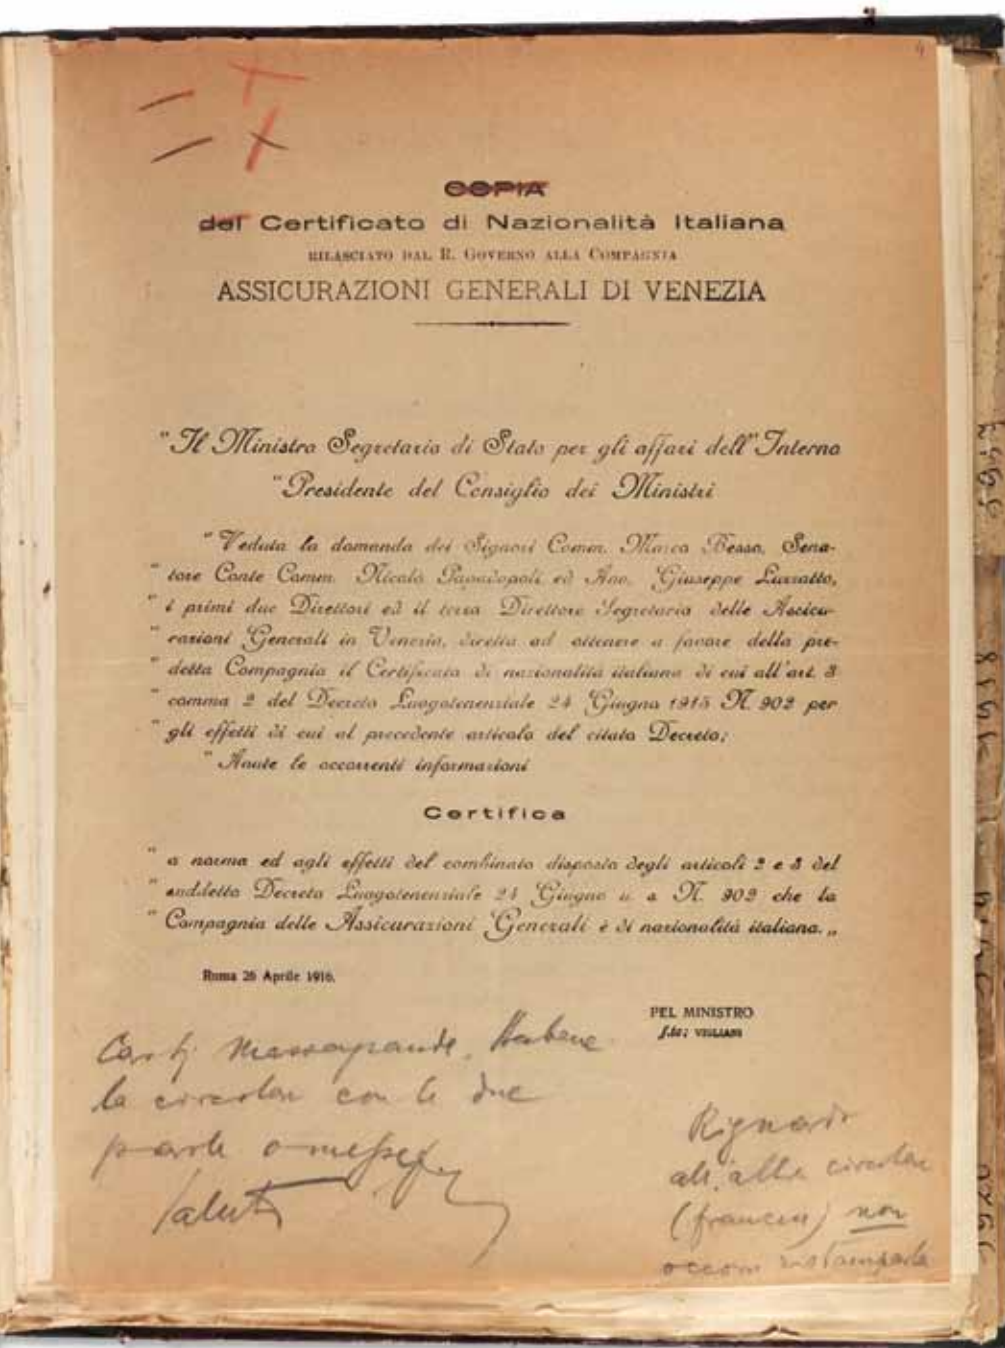 4
COPIA
del Certificato di Nazionalità Italiana
RILASCIATO DAL R. GOVERNO ALLA COMPAGNIA
ASSICURAZIONI GENERALI DI VENEZIA
"Il Ministro Segretario di Stato per gli affari dell'Interno
"Presidente del Consiglio dei Ministri
"Veduta la domanda dei Signori Comm. Marco Besso, Sena-
" tore Conte Comm. Nicolò Papadopoli ed Avv. Giuseppe Luzzatto,
" i primi due Direttori ed il terzo Direttore Segretario delle Assicu-
" razioni Generali in Venezia, diretta ad ottenere a favore della pre-
" detta Compagnia il Certificato di nazionalità italiana di cui all'art. 3
" comma 2 del Decreto Luogotenenziale 24 Giugno 1915 N. 902 per
" gli effetti di cui al precedente articolo del citato Decreto;
"Avute le occorrenti informazioni
Certifica
" a norma ed agli effetti del combinato disposto degli articoli 2 e 3 del
" suddetto Decreto Luogotenenziale 24 Giugno u. a. N. 902 che la
" Compagnia delle Assicurazioni Generali è di nazionalità italiana.„
Roma 26 Aprile 1916.
PEL MINISTRO
f.to: VIGLIANI
la circolare con le due
parole omesse
Saluti
Riguardo
all'altra circolare
(francese) non
occorre ristamparla